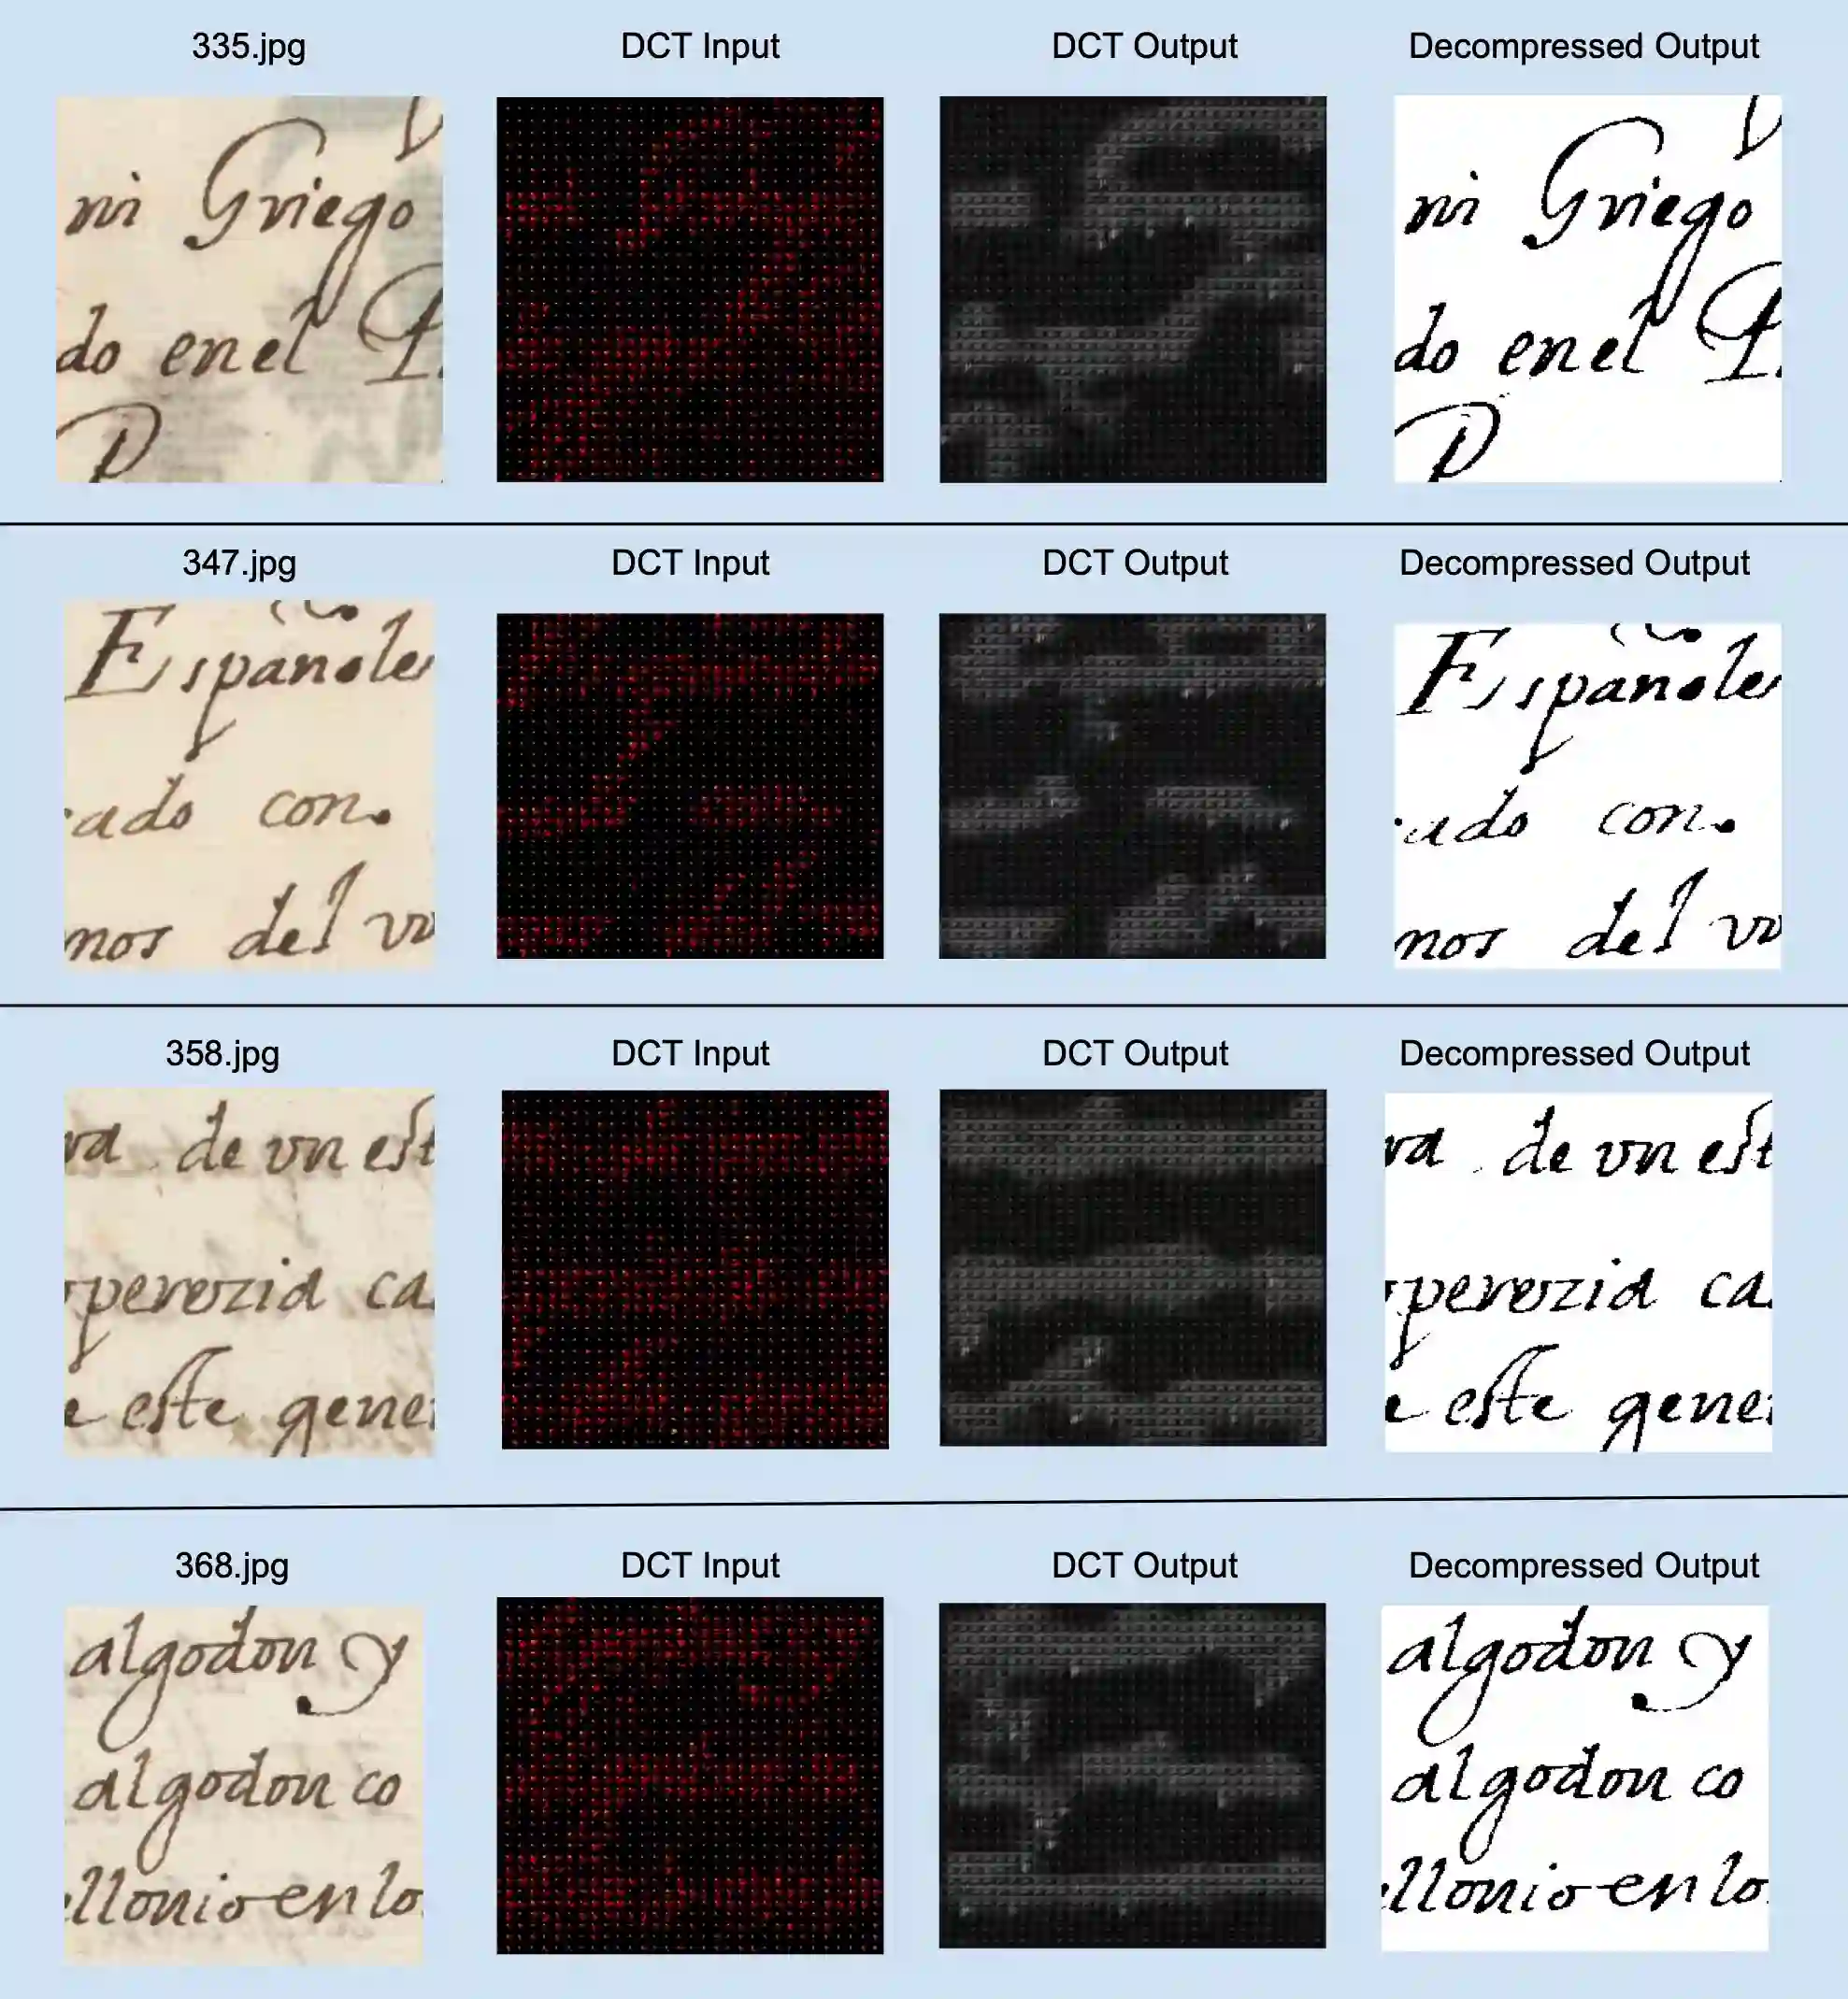 335.jpg DCT Input DCT Output Decompressed Output
mi Griego
do enel P.
P
mi Griego
do enel P.
P
347.jpg DCT Input DCT Output Decompressed Output
Españoles
cado con.
nos del vo
Españoles
cado con.
nos del vo
358.jpg DCT Input DCT Output Decompressed Output
va de vn est
perezia ca
e este gener
va . de vn est
perezia ca
e este gener
368.jpg DCT Input DCT Output Decompressed Output
algodon y
algodon co
ellonio en lo
algodon y
algodon co
ellonio en lo